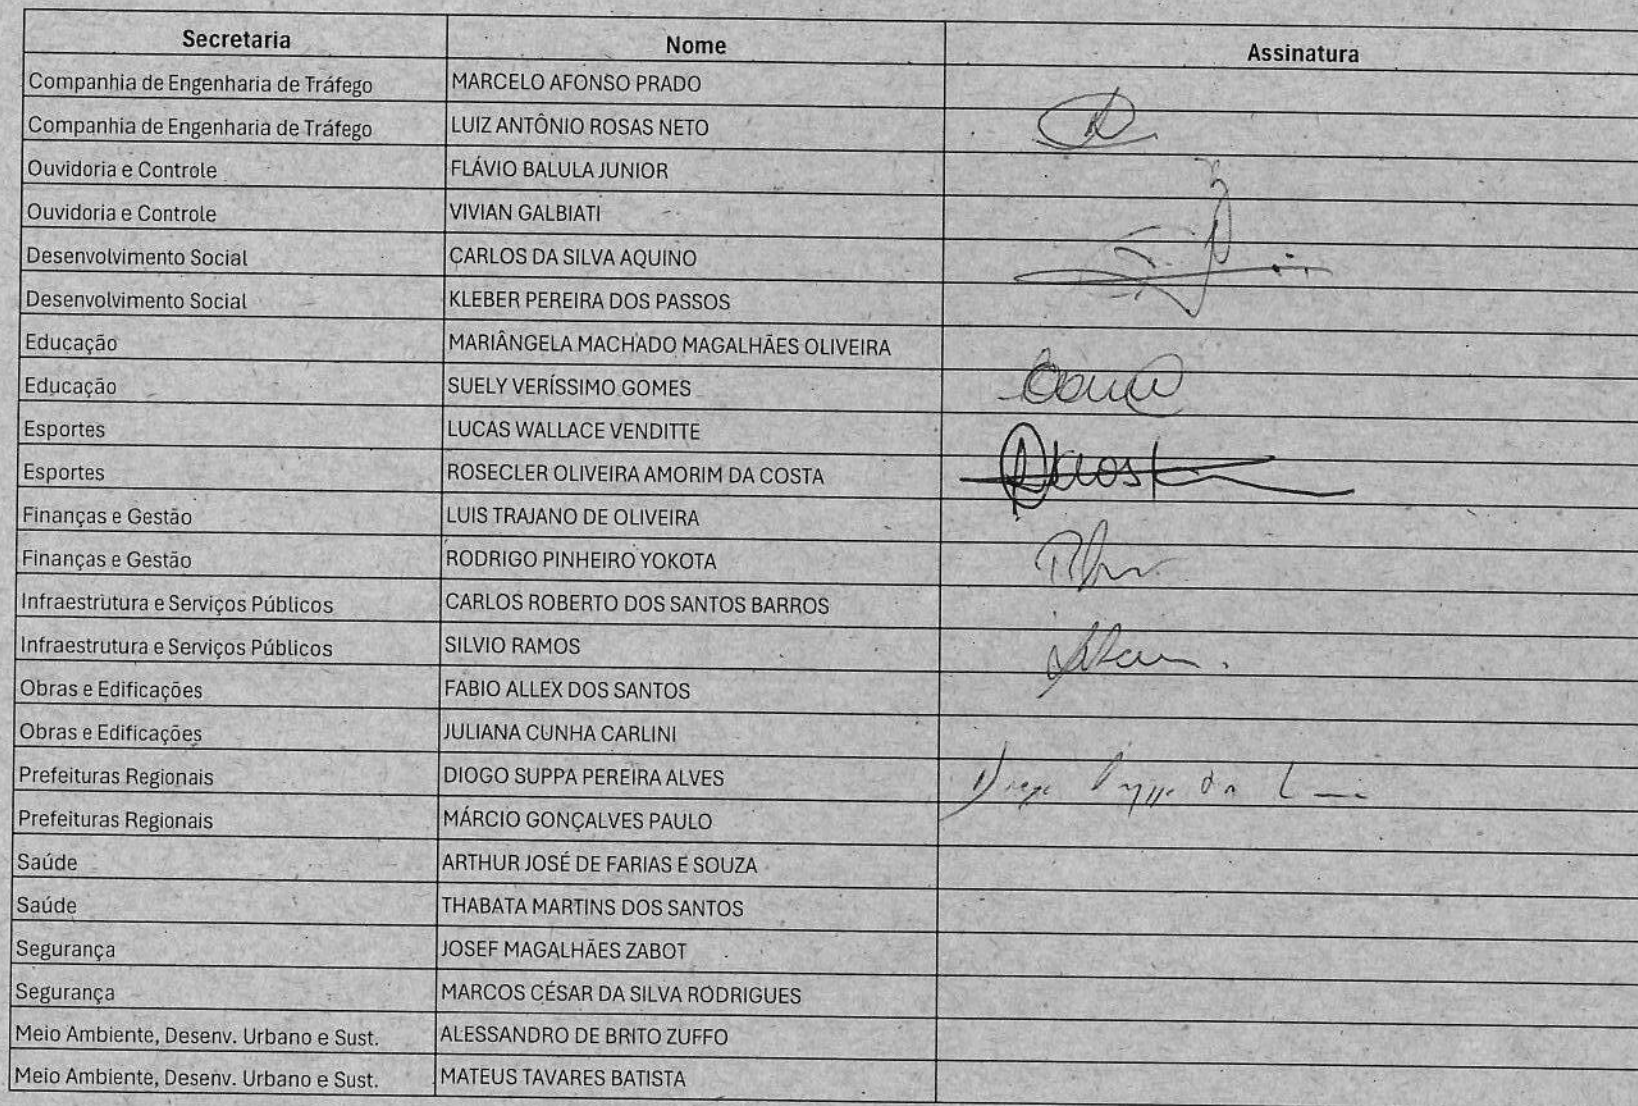 Secretaria Nome Assinatura
Companhia de Engenharia de Tráfego MARCELO AFONSO PRADO
Companhia de Engenharia de Tráfego LUIZ ANTÔNIO ROSAS NETO
Ouvidoria e Controle FLÁVIO BALULA JUNIOR
Ouvidoria e Controle VIVIAN GALBIATI
Desenvolvimento Social CARLOS DA SILVA AQUINO
Desenvolvimento Social KLEBER PEREIRA DOS PASSOS
Educação MARIÂNGELA MACHADO MAGALHÃES OLIVEIRA
Educação SUELY VERÍSSIMO GOMES
Esportes LUCAS WALLACE VENDITTE
Esportes ROSECLER OLIVEIRA AMORIM DA COSTA
Finanças e Gestão LUIS TRAJANO DE OLIVEIRA
Finanças e Gestão RODRIGO PINHEIRO YOKOTA
Infraestrutura e Serviços Públicos CARLOS ROBERTO DOS SANTOS BARROS
Infraestrutura e Serviços Públicos SILVIO RAMOS
Obras e Edificações FABIO ALLEX DOS SANTOS
Obras e Edificações JULIANA CUNHA CARLINI
Prefeituras Regionais DIOGO SUPPA PEREIRA ALVES
Prefeituras Regionais MÁRCIO GONÇALVES PAULO
Saúde ARTHUR JOSÉ DE FARIAS E SOUZA
Saúde THABATA MARTINS DOS SANTOS
Segurança JOSEF MAGALHÃES ZABOT
Segurança MARCOS CÉSAR DA SILVA RODRIGUES
Meio Ambiente, Desenv. Urbano e Sust. ALESSANDRO DE BRITO ZUFFO
Meio Ambiente, Desenv. Urbano e Sust. MATEUS TAVARES BATISTA